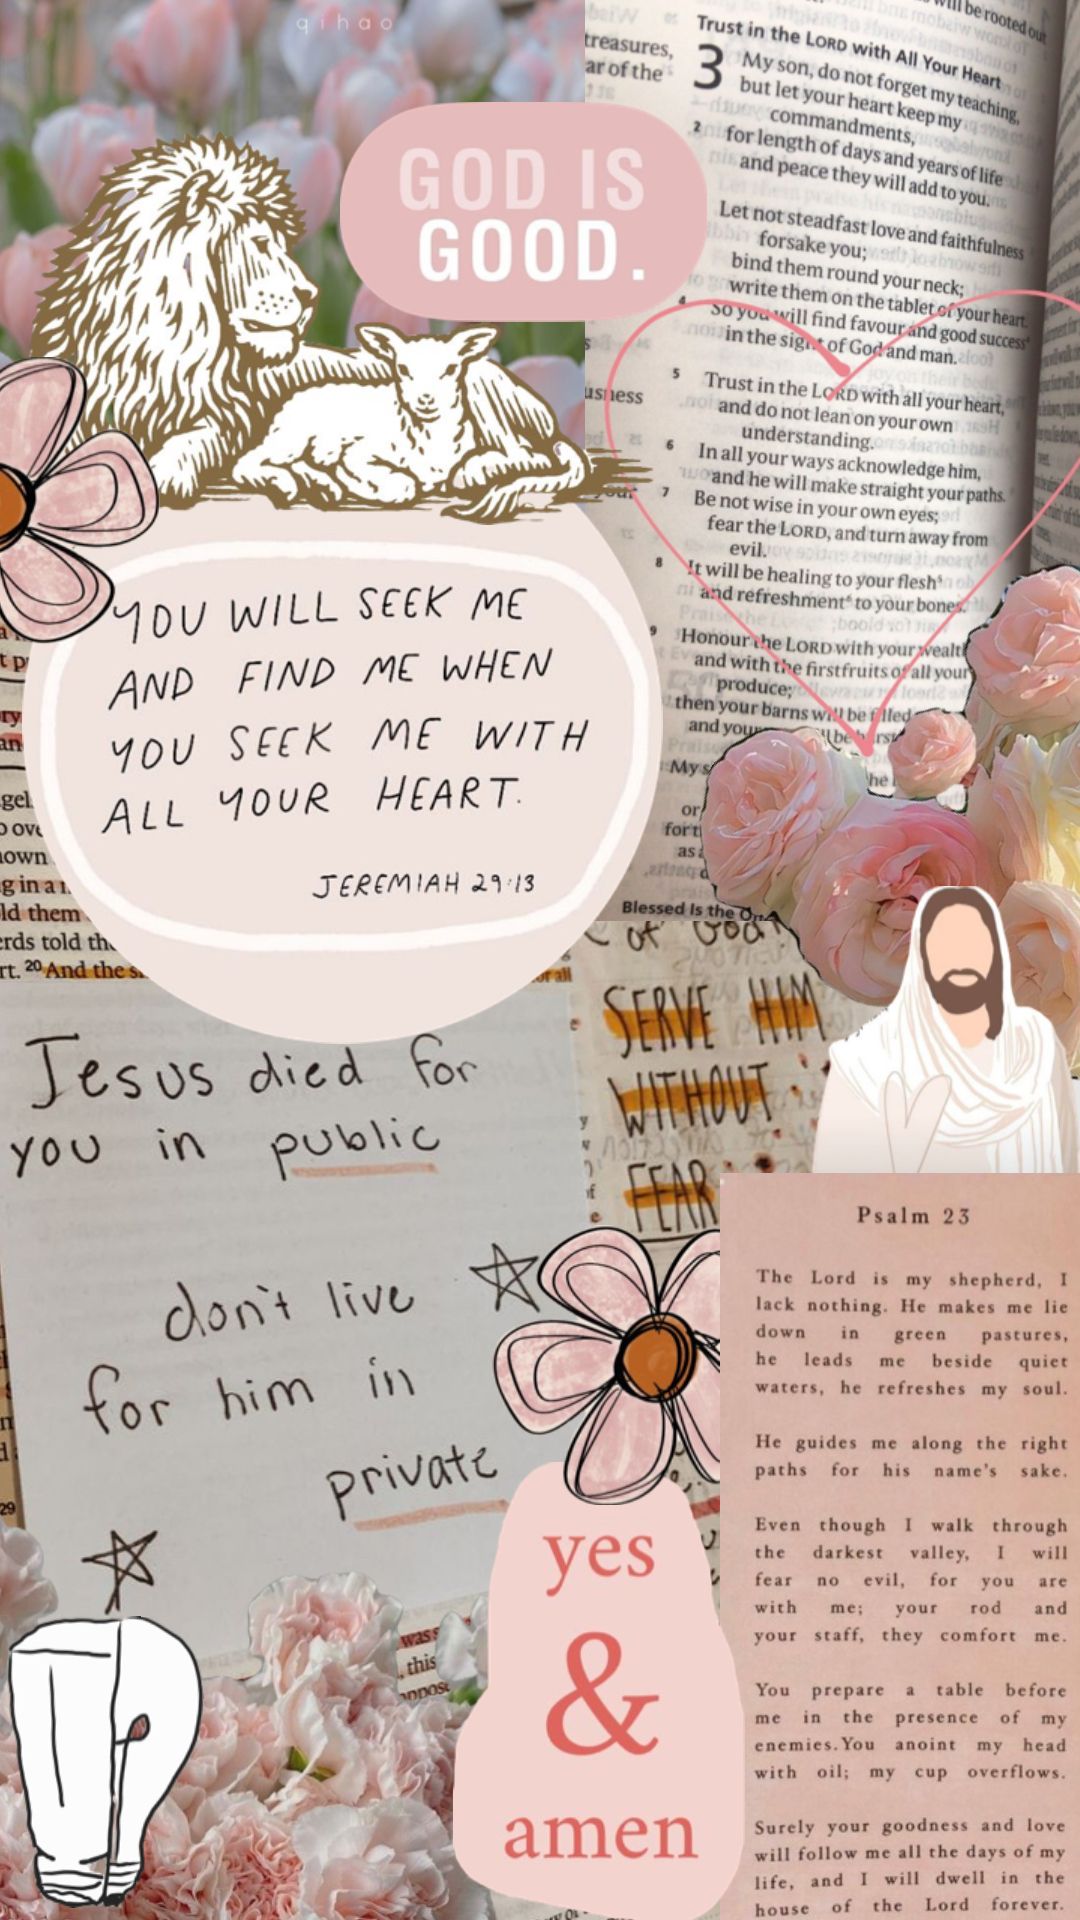 qihao
GOD IS
GOOD.
will be rooted out
treasures,
ar of the
Trust in the LORD with All Your Heart
3 My son, do not forget my teaching,
but let your heart keep my
commandments,
2 for length of days and years of life
and peace they will add to you.
Let not steadfast love and faithfulness
forsake you;
bind them round your neck;
write them on the tablet of your heart.
4 So you will find favour and good success
in the sight of God and man.
5 Trust in the LORD with all your heart,
and do not lean on your own
understanding.
6 In all your ways acknowledge him,
and he will make straight your paths.
7 Be not wise in your own eyes;
fear the LORD, and turn away from
evil.
8 It will be healing to your flesh
and refreshment to your bones.
9 Honour the LORD with your wealth
and with the firstfruits of all your
produce;
then your barns will be filled
and your
My s
Blessed Is the One
YOU WILL SEEK ME
AND FIND ME WHEN
YOU SEEK ME WITH
ALL YOUR HEART.
JEREMIAH 29:13
own
g in a
ld them
erds told the
rt. 20 And the s
or all
of God
SERVE HIM
WITHOUT
FEAR
Jesus died for
you in public
don't live
for him in
private
29
was
, this
yes
&
amen
Psalm 23
The Lord is my shepherd, I
lack nothing. He makes me lie
down in green pastures,
he leads me beside quiet
waters, he refreshes my soul.
He guides me along the right
paths for his name's sake.
Even though I walk through
the darkest valley, I will
fear no evil, for you are
with me; your rod and
your staff, they comfort me.
You prepare a table before
me in the presence of my
enemies.You anoint my head
with oil; my cup overflows.
Surely your goodness and love
will follow me all the days of my
life, and I will dwell in the
house of the Lord forever.